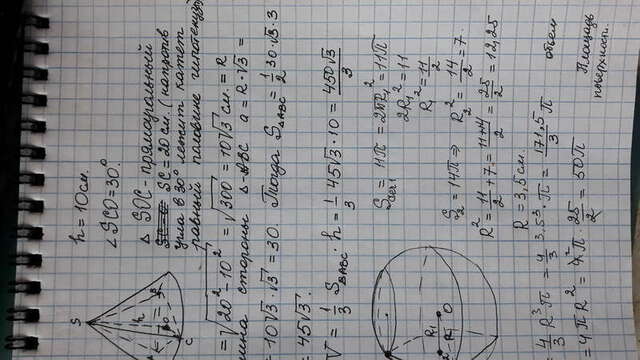 h = 10 см.
∠SCO = 30°
△ SOC - прямоугольный
SC = 20 см. (напротив
угла в 30° лежит катет
равный половине гипотенузы)
= √20² - 10² = √300 = 10√3 см. = R
стороны △ ABC a = R·√3 =
= 10√3·√3 = 30. Тогда S△ABC = 1/2 30·√3·3
= 45√3.
V = 1/3 S△ABC · h = 1/3 45√3 · 10 = 450√3/3
S
h
C
Sсеч1 = 11π = 2πR₁² = 11π
2R₁² = 11
R₁² = 11/2
S₂ = 14π ⇒ R₂² = 14/2 = 7.
R² = 11/2 + 7 = 11+14/2 = 25/2 = 12,25
R = 3,5 см.
R₁
O
4/3 R³π = 4/3 · 3.5³ · π = 171,5/3 π объем
= 4πR² = 4π · 25/2 = 50π Площадь
поверхности.